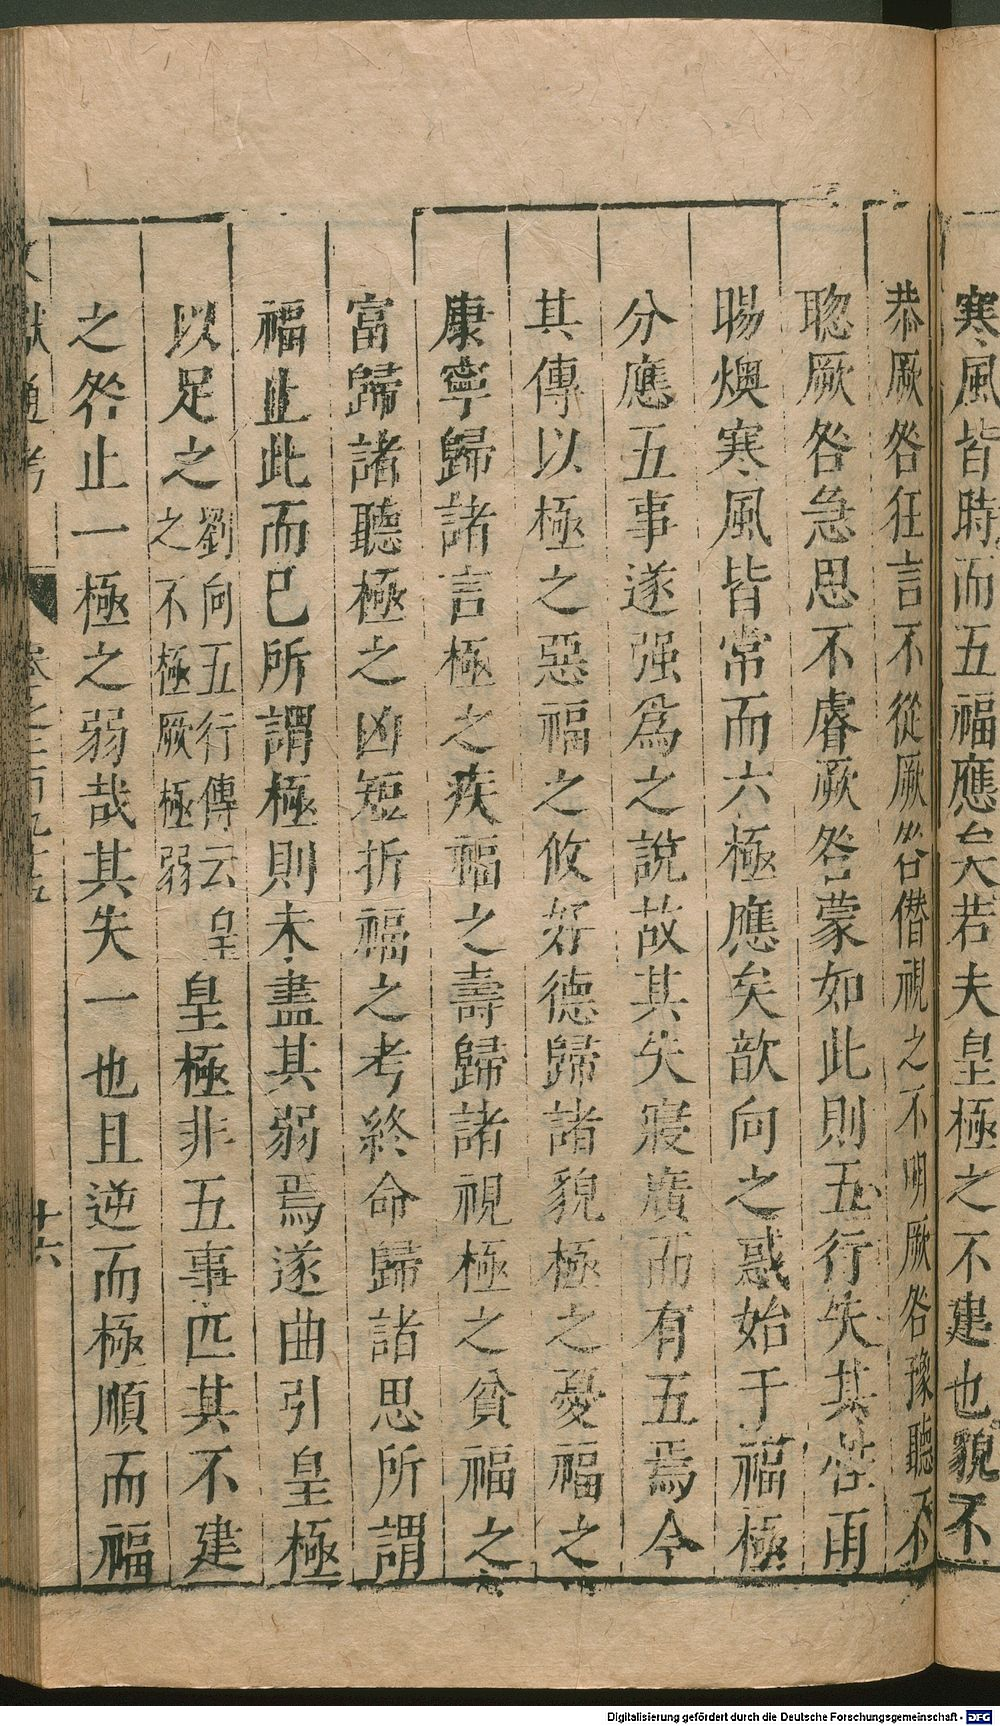 寒風皆時而五福應矣若夫皇極之不建也貌不
恭厥咎狂言不從厥咎僭視之不明厥咎豫聽不
聦厥咎急思不睿厥咎蒙如此則五行失其性雨
暘燠寒風皆常而六極應矣歆向之惑始于福極
分應五事遂强爲之說故其失寖廣而有五焉今
其傳以極之惡福之攸好德歸諸貌極之憂福之
康寧歸諸言極之疾福之壽歸諸視極之貧福之
富歸諸聽極之凶短折福之考終命歸諸思所謂
福止此而已所謂極則未盡其弱焉遂曲引皇極
以足之劉向五行傳云皇之不極厥極弱皇極非五事匹其不建
之咎止一極之弱哉其失一也且逆而極順而福
文獻通考
卷之三百九十五
十六
Digitalisierung gefördert durch die Deutsche Forschungsgemeinschaft - DFG